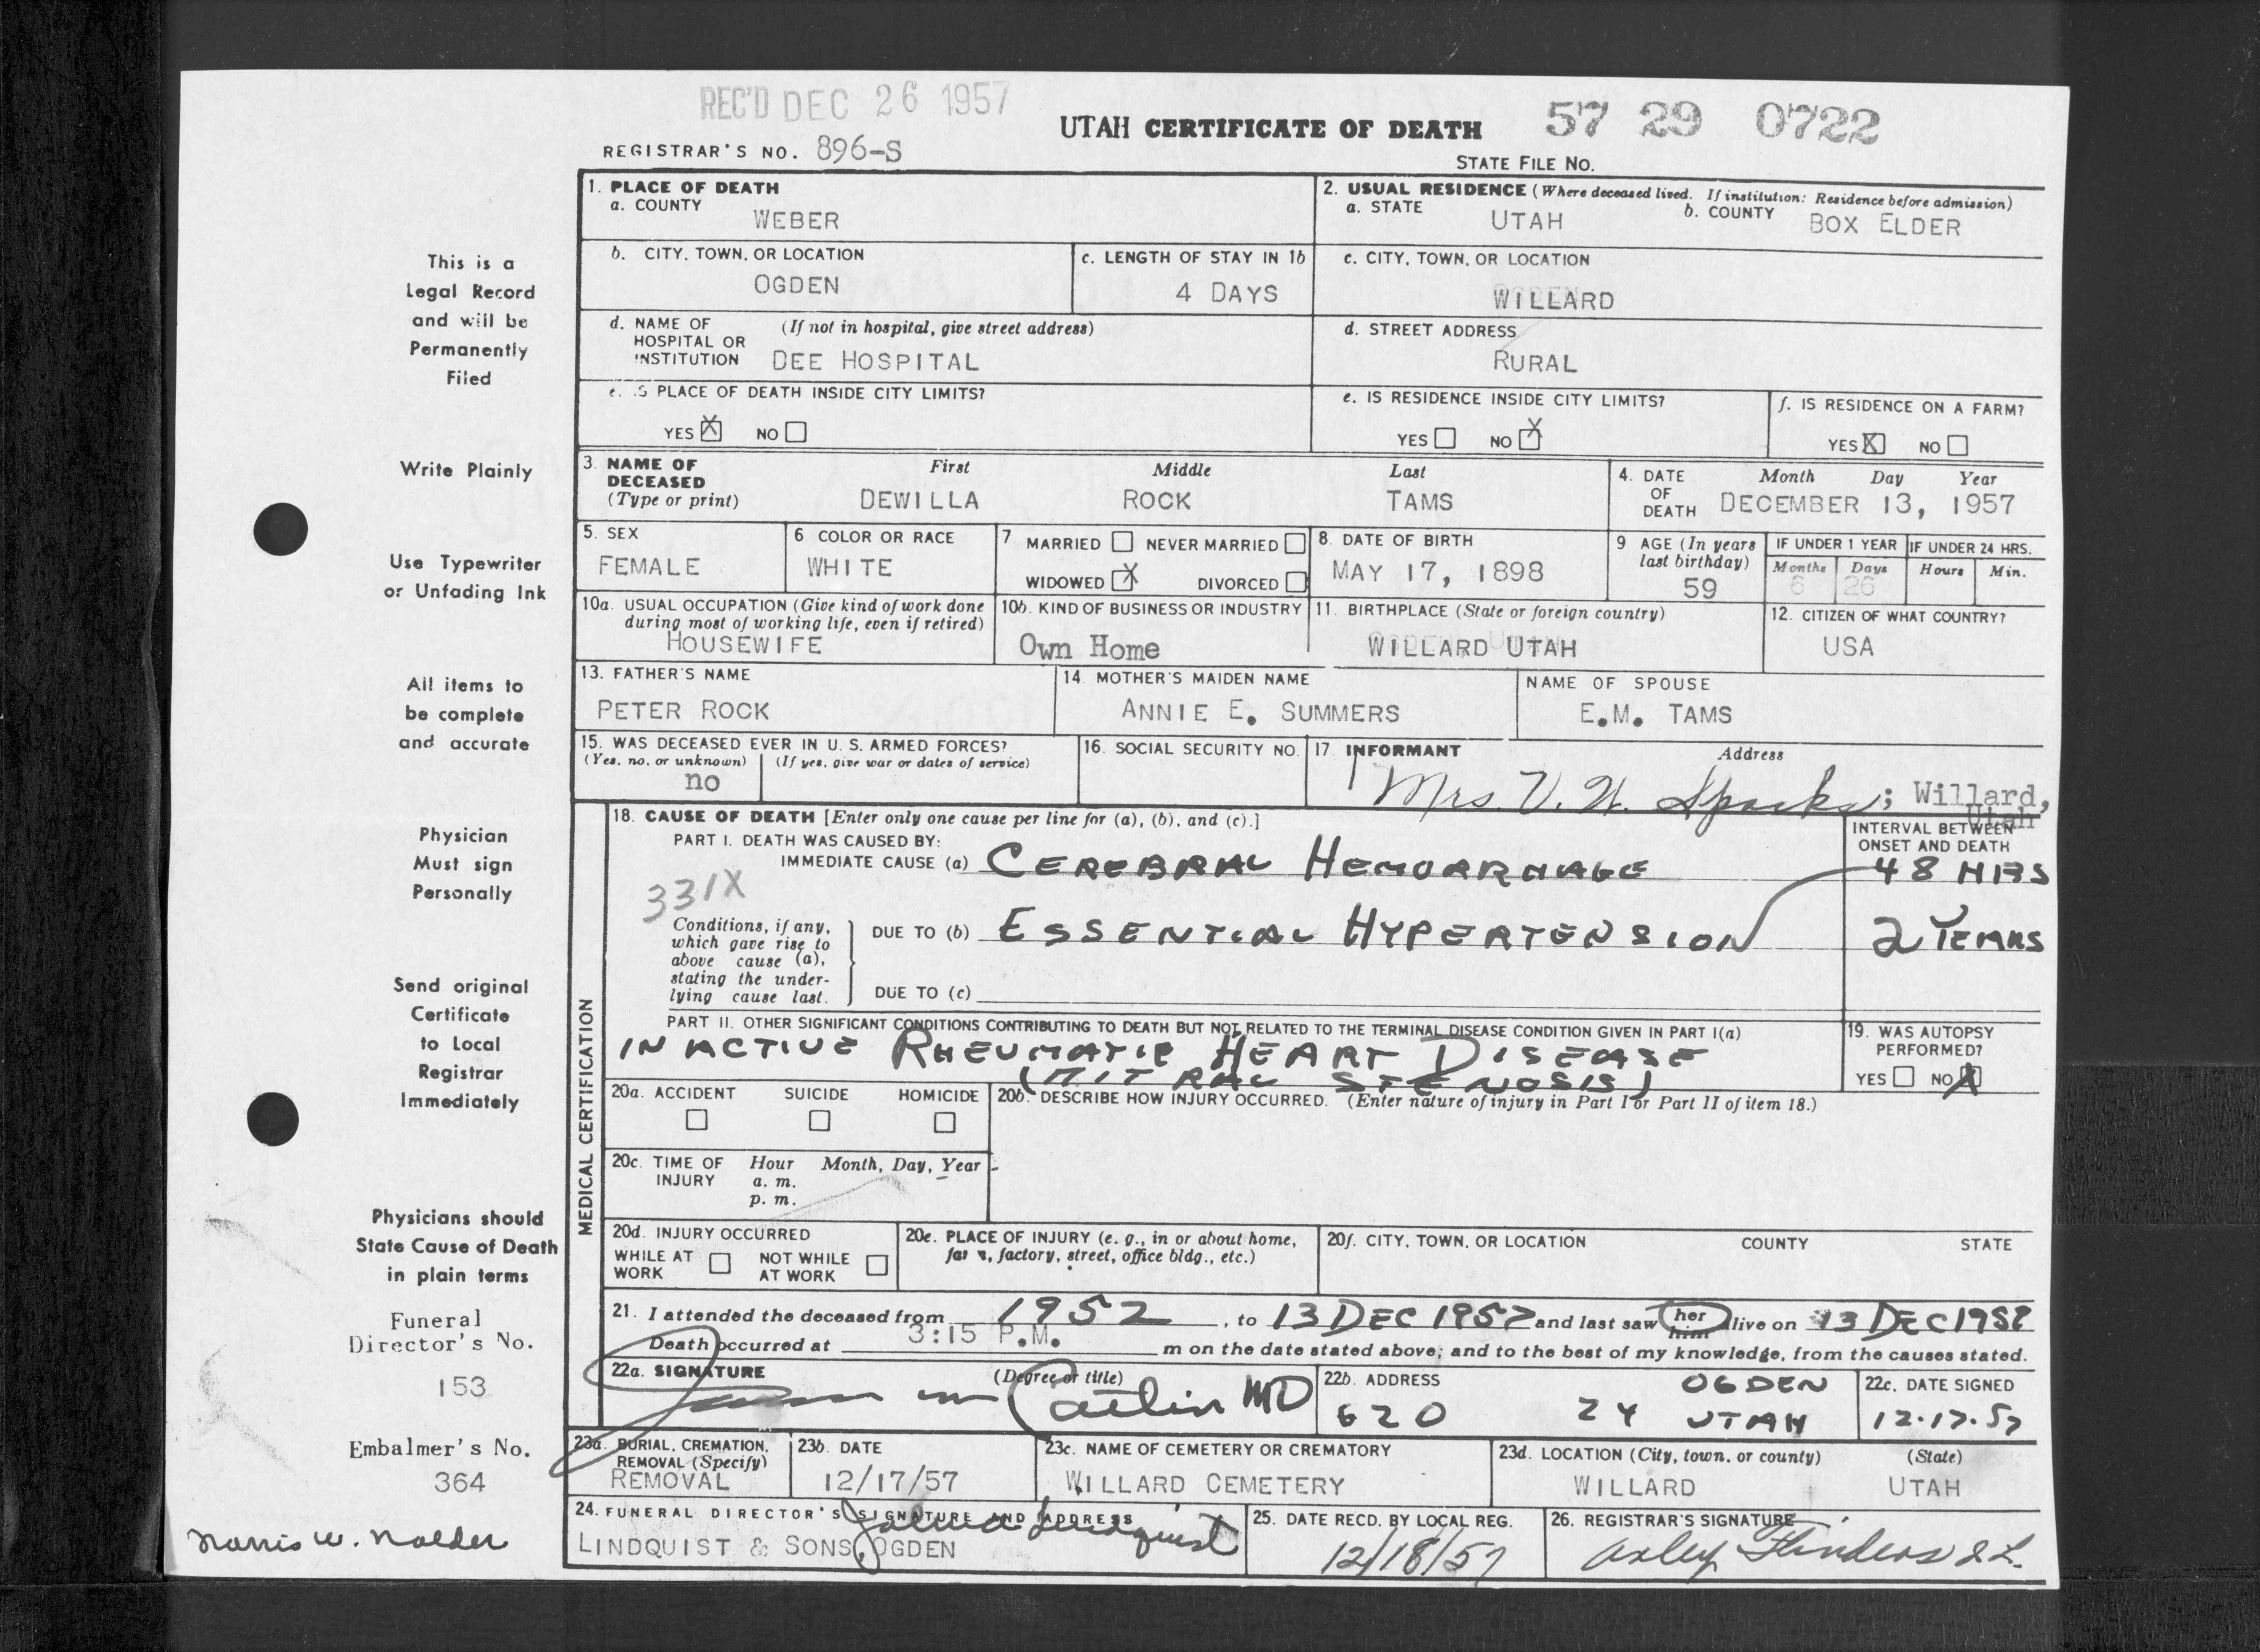 REC'D DEC 26 1957
UTAH CERTIFICATE OF DEATH 57 29 0722
REGISTRAR'S NO. 896-S
STATE FILE NO.
1. PLACE OF DEATH
a. COUNTY
WEBER
2. USUAL RESIDENCE (Where deceased lived. If institution: Residence before admission)
a. STATE UTAH b. COUNTY BOX ELDER
b. CITY, TOWN, OR LOCATION
OGDEN
c. LENGTH OF STAY IN 1b
4 DAYS
c. CITY, TOWN, OR LOCATION
WILLARD
d. NAME OF HOSPITAL OR INSTITUTION (If not in hospital, give street address)
DEE HOSPITAL
d. STREET ADDRESS
RURAL
e. IS PLACE OF DEATH INSIDE CITY LIMITS?
YES X NO
e. IS RESIDENCE INSIDE CITY LIMITS?
YES NO X
f. IS RESIDENCE ON A FARM?
YES X NO
3. NAME OF DECEASED (Type or print)
First Middle Last
DEWILLA ROCK TAMS
4. DATE OF DEATH
Month Day Year
DECEMBER 13, 1957
5. SEX
FEMALE
6 COLOR OR RACE
WHITE
7 MARRIED NEVER MARRIED
WIDOWED X DIVORCED
8. DATE OF BIRTH
MAY 17, 1898
9 AGE (In years last birthday)
59
IF UNDER 1 YEAR
Months Days
6 26
IF UNDER 24 HRS.
Hours Min.
10a. USUAL OCCUPATION (Give kind of work done during most of working life, even if retired)
HOUSEWIFE
10b. KIND OF BUSINESS OR INDUSTRY
Own Home
11. BIRTHPLACE (State or foreign country)
WILLARD UTAH
12. CITIZEN OF WHAT COUNTRY?
USA
13. FATHER'S NAME
PETER ROCK
14. MOTHER'S MAIDEN NAME
ANNIE E. SUMMERS
NAME OF SPOUSE
E.M. TAMS
15. WAS DECEASED EVER IN U.S. ARMED FORCES?
(Yes, no, or unknown) (If yes, give war or dates of service)
no
16. SOCIAL SECURITY NO.
17. INFORMANT Address
Mrs. V. W. Sparks; Willard, Utah
MEDICAL CERTIFICATION
18. CAUSE OF DEATH [Enter only one cause per line for (a), (b), and (c).]
PART I. DEATH WAS CAUSED BY:
IMMEDIATE CAUSE (a) CEREBRAL HEMORRHAGE
331X
Conditions, if any, which gave rise to above cause (a), stating the underlying cause last.
DUE TO (b) ESSENTIAL HYPERTENSION
DUE TO (c)
INTERVAL BETWEEN ONSET AND DEATH
48 HRS
2 YEARS
PART II. OTHER SIGNIFICANT CONDITIONS CONTRIBUTING TO DEATH BUT NOT RELATED TO THE TERMINAL DISEASE CONDITION GIVEN IN PART I(a)
INACTIVE RHEUMATIC HEART DISEASE
(MITRAL STENOSIS)
19. WAS AUTOPSY PERFORMED?
YES NO X
20a. ACCIDENT SUICIDE HOMICIDE
20b. DESCRIBE HOW INJURY OCCURRED. (Enter nature of injury in Part I or Part II of item 18.)
20c. TIME OF INJURY Hour Month, Day, Year
a. m.
p. m.
20d. INJURY OCCURRED
WHILE AT WORK NOT WHILE AT WORK
20e. PLACE OF INJURY (e. g., in or about home, farm, factory, street, office bldg., etc.)
20f. CITY, TOWN, OR LOCATION COUNTY STATE
21. I attended the deceased from 1952, to 13 DEC 1957 and last saw her him alive on 13 DEC 1957
Death occurred at 3:15 P.M. m on the date stated above; and to the best of my knowledge, from the causes stated.
22a. SIGNATURE (Degree or title)
Catlin MD
22b. ADDRESS
620 24 OGDEN UTAH
22c. DATE SIGNED
12-17-57
23a. BURIAL, CREMATION, REMOVAL (Specify)
REMOVAL
23b. DATE
12/17/57
23c. NAME OF CEMETERY OR CREMATORY
WILLARD CEMETERY
23d. LOCATION (City, town, or county) (State)
WILLARD UTAH
24. FUNERAL DIRECTOR'S SIGNATURE AND ADDRESS
Lindquist
LINDQUIST & SONS, OGDEN
25. DATE RECD. BY LOCAL REG.
12/18/57
26. REGISTRAR'S SIGNATURE
Flinders
This is a
Legal Record
and will be
Permanently
Filed
Write Plainly
Use Typewriter
or Unfading Ink
All items to
be complete
and accurate
Physician
Must sign
Personally
Send original
Certificate
to Local
Registrar
Immediately
Physicians should
State Cause of Death
in plain terms
Funeral
Director's No.
153
Embalmer's No.
364
Norris W. Nalder